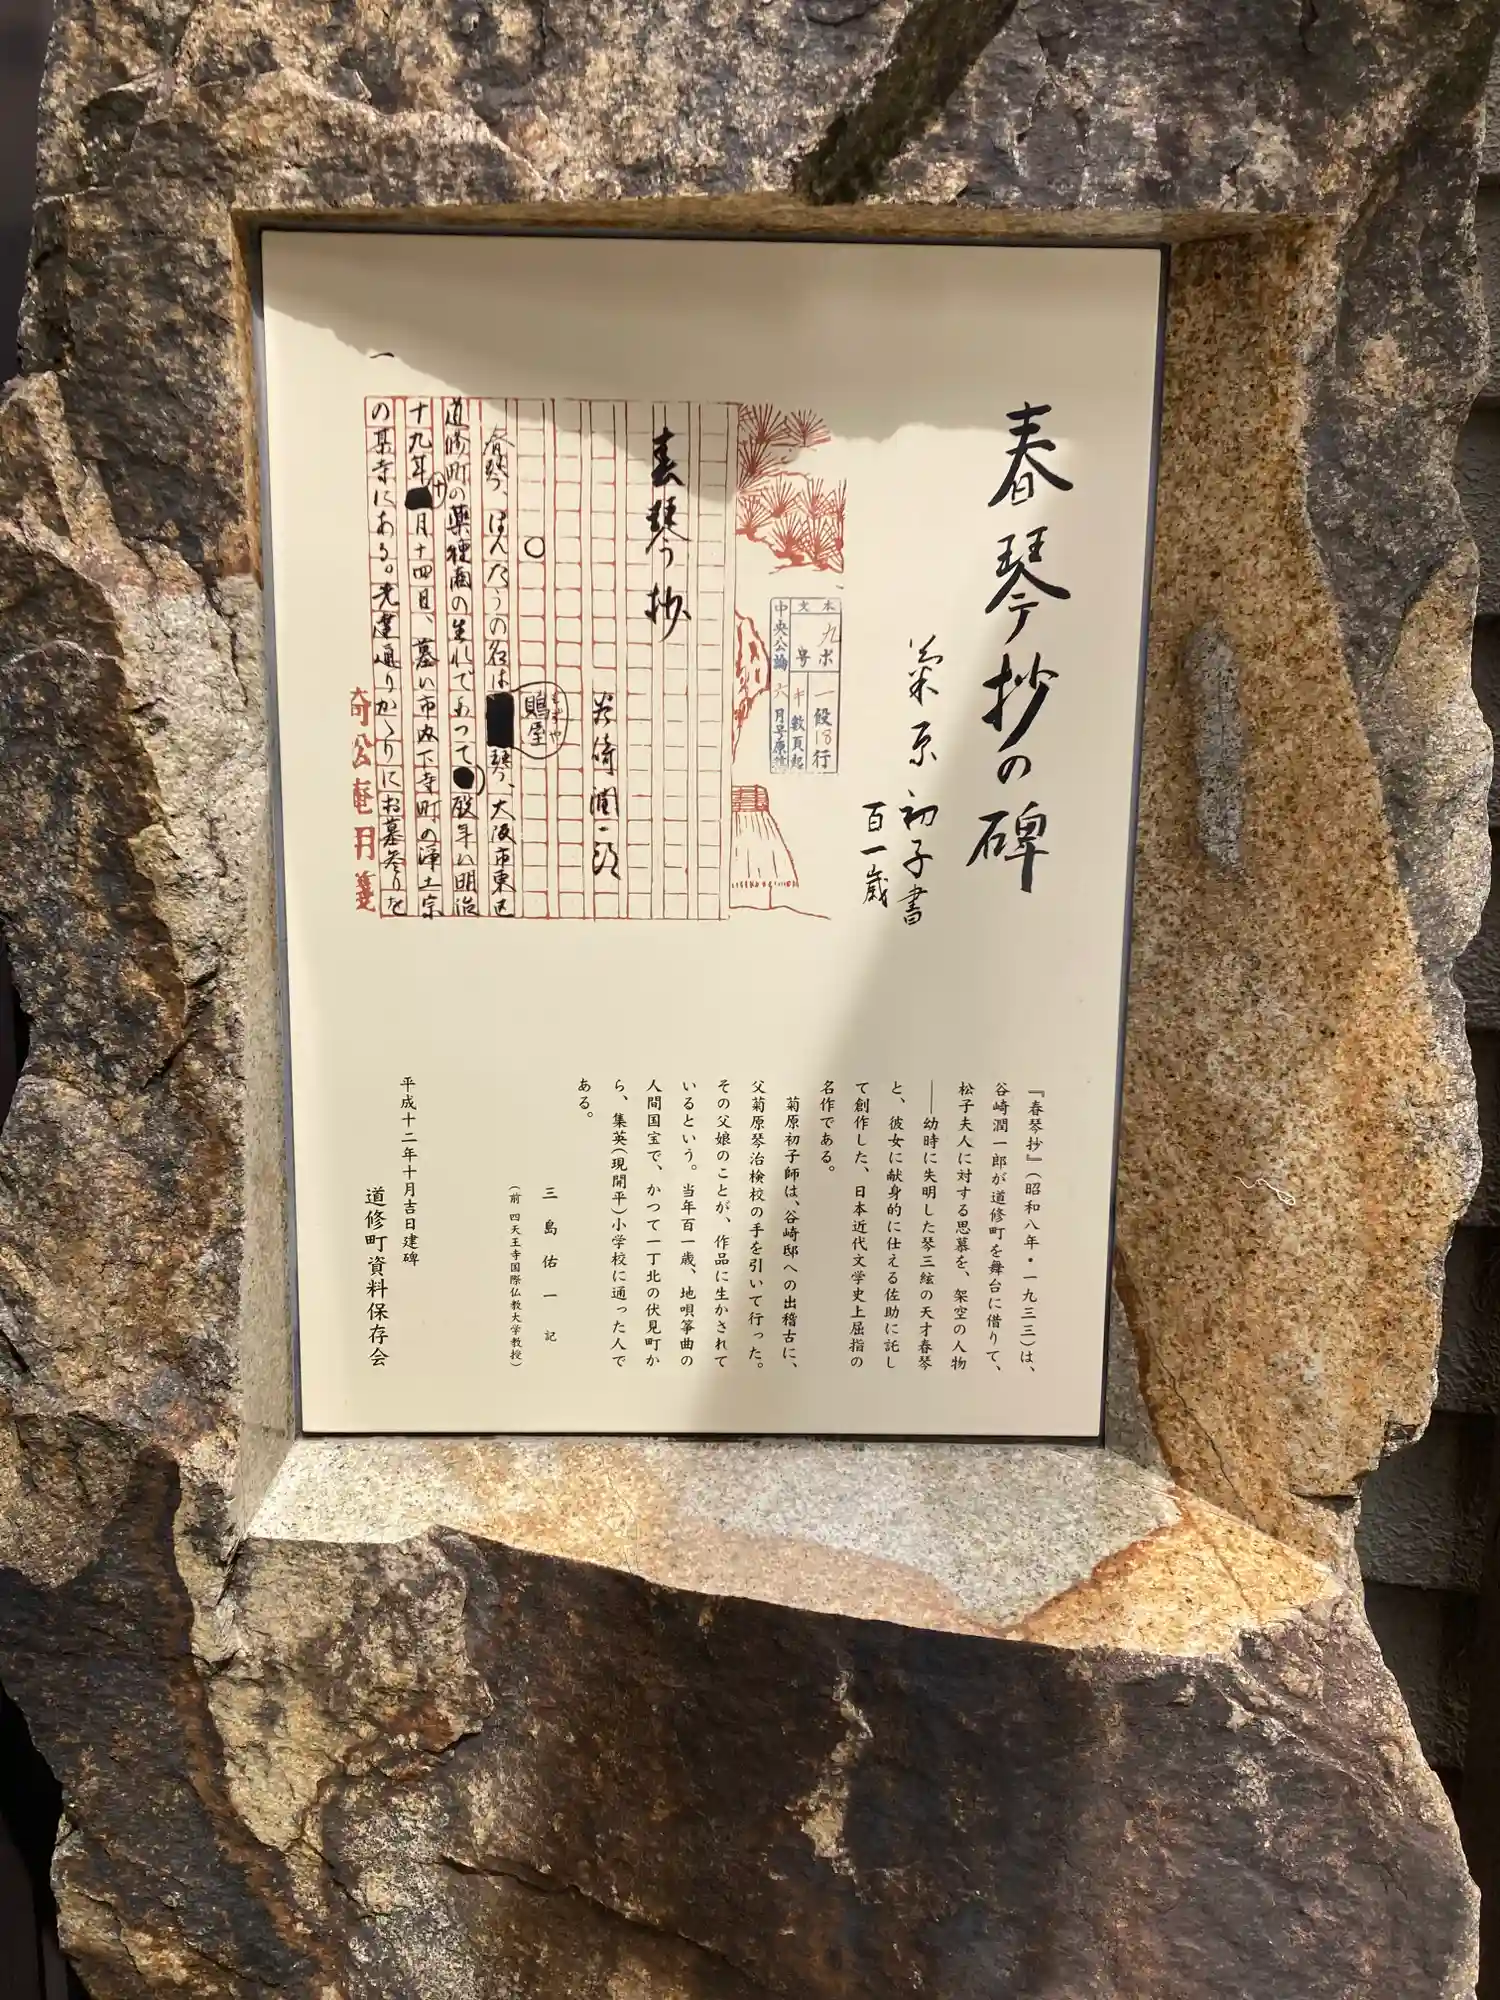 春琴抄の碑
菊原初子書
百一歳
本文
九ポ
一段18行
号
中央公論
六月号原稿
春琴抄
谷崎潤一郎
鵙屋
もずや
○
春琴、ほんたうの名は
琴、大阪市東区
道修町の薬種商の生れであつて
歿年は明治
十九年十月十四日、墓は市内下寺町の浄土宗
の某寺にある。先達通りかゝりにお墓参りを
一
倚松庵用箋
『春琴抄』(昭和八年・一九三三)は、
谷崎潤一郎が道修町を舞台に借りて、
松子夫人に対する思慕を、架空の人物
――幼時に失明した琴三絃の天才春琴
と、彼女に献身的に仕える佐助に託し
て創作した、日本近代文学史上屈指の
名作である。
菊原初子師は、谷崎邸への出稽古に、
父菊原琴治検校の手を引いて行った。
その父娘のことが、作品に生かされて
いるという。当年百一歳、地唄箏曲の
人間国宝で、かつて一丁北の伏見町か
ら、集英(現開平)小学校に通った人で
ある。
三島佑一 記
(前 四天王寺国際仏教大学教授)
平成十二年十月吉日建碑
道修町資料保存会